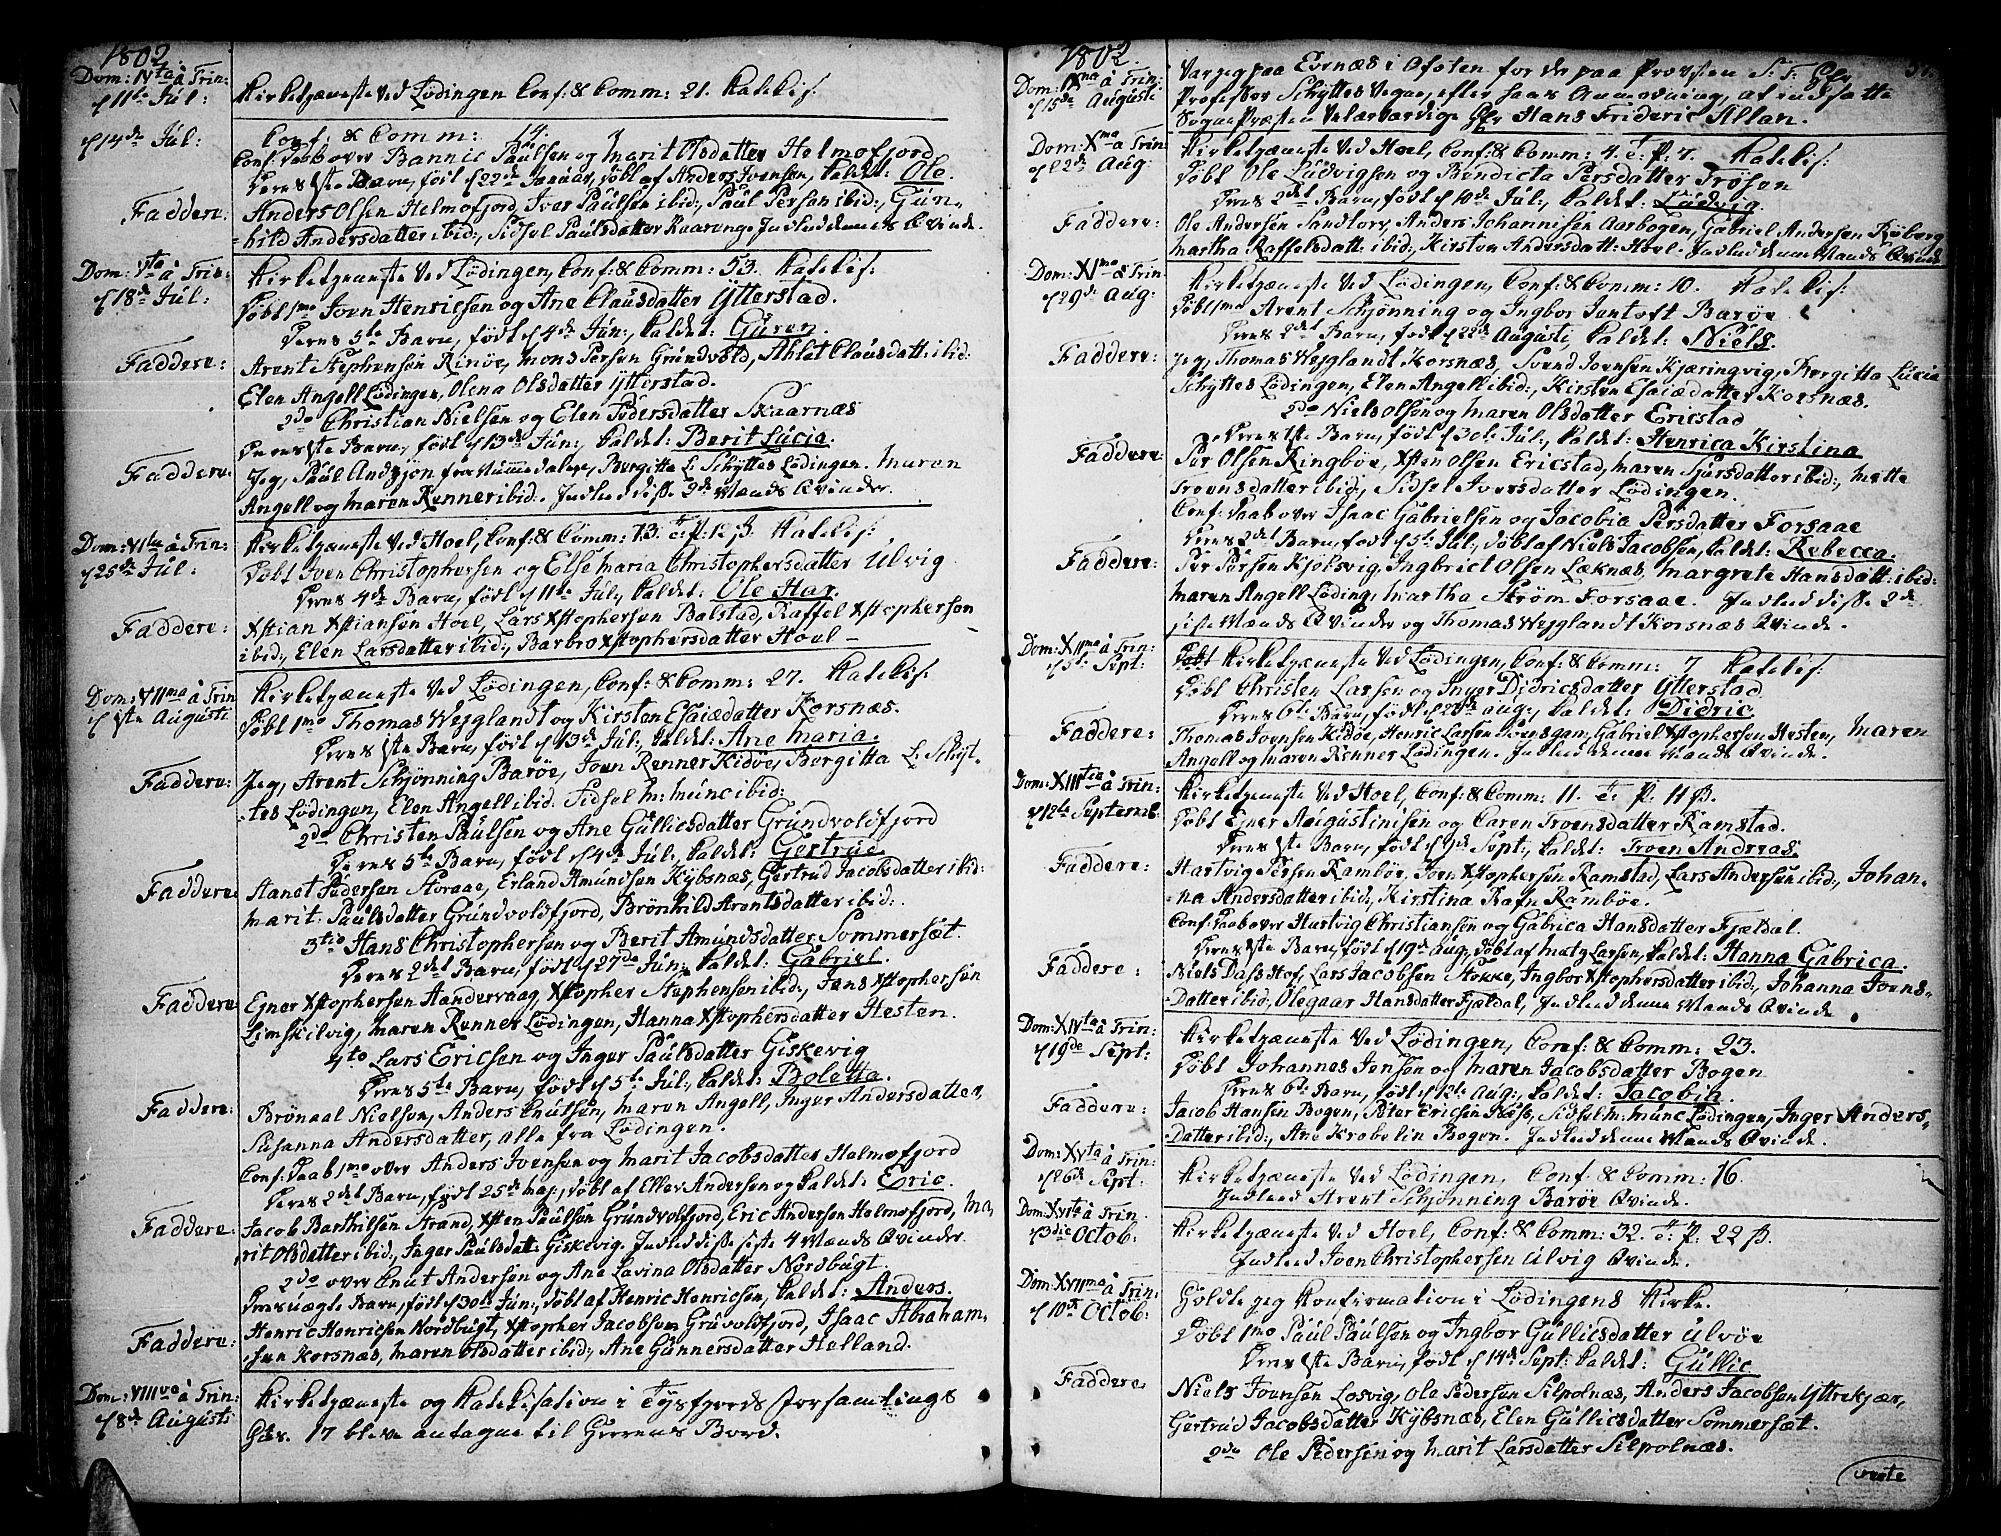 1802.
Dom: IVta à Trin:
d 11te Jul:
Kirketjæneste ved Lödingen Conf: & Comm: 21. Katekis:
d 14de Jul:
Conf: & Comm: 14.
Conf: Daab over Bannic Paulsen og Marit Olsdatter Helmofjord
Deres 1ste Barn, födt d 22de Januar, döbt af Anders Ivensen, kaldet: Ole.
Faddere:
Anders Olsen Helmofjord, Ivar Paulsen ibid:, Paul Persen ibid:, Gun-
hild Andersdatter ibid:, Sidsel Paulsdatter Kuaren. Indled denne M. Qvinde.
Dom: Vta à Trin:
d 18de Jul:
Kirketjeneste ved Lödingen, Conf: & Comm: 53. Katekis:
Döbt 1mo Iven Henricsen og Ane Clausdatter Ytterstad.
Deres 5te Barn, födt d 4de Jun:, kaldet: Guren.
Faddere:
Arent Stephensen Rinöe, Mons Persen Grundvold, Ahlet Clausdatt: ibid:
Elen Angell Lödingen, Olena Olsdatter Ytterstad.
2do Christian Nielsen og Elen Pedersdatter Skaarnæs
Deres 1ste Barn, födt d 13de Jun:, kaldet: Berit Lucia.
Faddere:
Jeg, Paul Andzjön fra Nummedalen, Birgitta L: Schyttes Lödingen. Maren
Angell og Maren Renner ibid. Indled disse 2de Mænds Qvinder.
Dom: VIta à Trin:
d 25de Jul:
Kirketjæneste ved Hoel, Conf: & Comm: 13. T: P: 12 ß. Katekis:
Döbt Iven Christophersen og Else Maria Christophersdatter Ulvig
Deres 4de Barn, födt d 11te Jul:, kaldet: Ole Har.
Faddere:
Xstian Xstiansen Hoel, Lars Xstophersen Balstad, Raffel Xstophersen
ibid:, Elen Larsdatter ibid:, Barbro Xstophersdatter Hoel –
Dom: VIIma à Trin
d 1ste Augusti
Kirketjæneste ved Lödingen, Conf: & Comm: 27. Katekis:
Döbt 1mo Thomas Wejglandt og Kirsten Esaiædatter Korsnæs.
Deres 1ste Barn, födt d 13de Jul:, kaldet: Ane Maria.
Faddere:
Jeg, Arent Schjönning Baröe, Iven Renner Kidöe, Birgitta L: Schyt-
tes Lödingen, Elen Angell ibid: Sidsel M: Munc ibid:
2do Christen Paulsen og Ane Gullicsdatter Grundvoldfjord
Deres 5te Barn, födt d 4de Jul:, kaldet: Gertrud
Faddere
Hanet Pedersen Storaae, Erland Amundsen Kybsnæs, Gertrud Jacobsdatter ibid:
Marit: Paulsdatter Grundvoldfjord, Brönhild Arentsdatter ibid:.
3tio Hans Christophersen og Berit Amundsdatter Sommersæt.
Deres 2det Barn, födt d 27de Jun:, kaldet: Gabriel.
Faddere
Ejner Xstophersen Sandervaag, Xstopher Stephensen ibid:, Jens Xstophersen
Limskilvig, Maren Renner Lödingen, Hanna Xstophersdatter Hesten.
4to Lars Ericsen og Inger Paulsdatter Giskevig
Deres 5te Barn, födt d 5te Jul:, kaldet: Boletta.
Faddere:
Brönaal Nielsen, Anders Cnutsen, Maren Angell, Inger Andersdatter,
Susanna Andersdatter, alle fra Lödingen.
Conf: Daab 1mo over Anders Ivensen og Marit Jacobsdatter Helmofjord
Deres 2det Barn, födt 25de Maj:, döbt af Eller Andersen og kaldet: Eric.
Faddere:
Jacob Barthilsen Strand, Xsten Paulsen Grundvolfjord, Eric Andersen Helmofjord, Ma-
rit Olsdatter ibid:, Inger Paulsdatt: Giskevig. Indled disse siste 4 Mænds Qvinder.
2do over Cnut Andersen og Ane Lavina Olsdatter Nordbugt.
Deres uægte Barn, födt d 30te Jun:, döbt af Henric Henricsen, kaldet: Anders.
Faddere:
Henric Henricsen Nordbugt, Xstopher Jacobsen Gruvoldfjord, Isaac Abraham-
sen Korsnæs, Maren Olsdatter ibid:, Ane Gunnersdatter Helland.
Dom: VIIIva à Trin:
d 8de Augusti
Kirketjæneste og Katekisation i Tysfjords Forsamlings
Huus. 17 bleve antagne til Herrens Bord.
1802.
Dom: IXna à Trin:
d 15de Augusti
Var jeg paa Evenæs i Ofoten for der paa Provsten S: T: Hr
Professor Schyttes Vegne, efter hans Anmodning, at indsætte
Sognepræsten Velærværdige Hr Hans Frideric Allan.
Dom: Xma à Trin:
d 22de Aug:
Kirketjæneste ved Hoel, Conf: & Comm: 4. T: P: 7. Katekis:
Döbt Ole Ludvigsen og Bendicta Persdatter Trösen
Deres 2det Barn, födt d 10de Jul:, kaldet: Ludvig.
Faddere:
Ole Andersen Sandtorv, Anders Johannesen Aarbogen, Gabriel Andersen Röberg
Martha Raffelsdatt: ibid:, Kirsten Andersdatt: Hoel. Indled denne Mands Qvinde
Dom: XIma à Trin
d 29de Aug:
Kirketjæneste ved Lödingen, Conf: & Comm: 10. Katekis:
Döbt 1mo Arent Schjönning og Ingbor Juntoft Baröe
Deres 2det Barn, födt d 22de Augusti, kaldet: Niels.
Faddere:
Jeg, Thomas Wejglandt Korsnæs, Svend Ivensen Kjæringvig, Birgitta Lucia
Schyttes Lödingen, Elen Angell ibid:, Kirsten Esaiædatter Korsnæs.
2do Niels Olsen og Maren Olsdatter Ericstad
Deres 1ste Barn, födt d 30te Jul:, kaldet: Henrica Kirstina
Faddere
Per Olsen Ringböe, Xsten Olsen Ericstad, Maren Sjursdatter ibid:, Mette
Troensdatter ibid:, Sidsel Iversdatter Lödingen.
Conf: Daab over Isaac Gabrielsen og Jacobia Persdatter Forsaae
Deres 2det Barn, födt d 5te Jul:, döbt af Niels Jacobsen, kaldet: Rebecca.
Faddere:
Per Persen Kjölsvig, Ingbrict Olsen Læknæs, Margrete Hansdatt: ibid:
Maren Angell Löding, Martha Ström Forsaae. Indled disse 2de
siste Mænds Qvinder og Thomas Wejglandt Korsnæs Qvinde.
Dom: XIIma à Trin:
d 5te Sept:
Kirketjæneste ved Lödingen, Conf: & Comm: 7 Katekis:
Döbt Christen Larsen og Inger Didricsdatter Ytterstad
Deres 6te Barn, födt d 28de Aug:, kaldet: Didric
Faddere:
Thomas Ivensen Kidöe, Henric Larsen Svensgam, Gabriel Xstophersen Hesten, Maren
Angell og Maren Renner Lödingen. Indled denne Mands Qvinde.
Dom: XIIItia à Trin:
d 12te Septemb:
Kirketjæneste ved Hoel, Conf: & Comm: 11. T: P: 11 ß.
Döbt Ejner Augustinisen og Caren Troensdatter Ramstad.
Deres 1ste Barn, födt d 1ste Sept:, kaldet: Troen Andreas.
Faddere:
Hartvig Persen Ramböe, Iven Xstophersen Ramstad, Lars Andersen ibid:, Johan-
na Andersdatter ibid:, Kirstina Rafn Ramböe.
Conf: Daab over Hartvig Christiansen og Gabrica Hansdatter Fjældal.
Deres 1ste Barn, födt d 19de Aug:, döbt af Mats Larsen, kaldet: Hanna Gabrica.
Faddere:
Niels Dass Hof, Lars Jacobsen Stokke, Ingbor Xstophersdatter ibid:, Johanna Ivens-
Datter ibid:, Olegaar Hansdatter Fjældal, Indled denne Mands Qvinde.
Dom: XIVta à Trin:
d 19de Sept:
Kirketjæneste ved Lödingen, Conf: & Comm: 23.
Döbt Johannes Jensen og Maren Jacobsdatter Bogen
Deres 6te Barn, födt d 12te Aug:, kaldet: Jacobin.
Faddere:
Jacob Hansen Bogen, Peter Ericsen Kase, Sidsel M: Munc Lödingen, Inger Anders-
Datter ibid:, Ane Krobelin Bogen. Indled denne Mands Qvinde.
Dom: XVta à Trin:
d 26de Sept:
Kirketjæneste ved Lödingen, Conf: & Comm: 16.
Indled Arent Schjönning Baröe Qvinde.
Dom: XVIta à Trin
d 3die Octob:
Kirketjæneste ved Hoel, Conf: & Comm: 32. T: P: 22 ß.
Indled Iven Christophersen Ulvig Qvinde.
Dom: XVIIma à Trin:
d 10de Octob:
Holdte jeg Konfirmation i Lödingens Kirke.
Döbt 1mo Paul Paulsen og Ingbor Gullicsdatter Ulvöe
Deres 1ste Barn, födt d 14de Sept: kaldet: Gullic
Faddere
Niels Ivensen Losvig, Ole Pedersen Silpolnæs, Anders Jacobsen Yttrekjær,
Gertrud Jacobsdatter Kybsnæs, Elen Gullicsdatter Sommersæt.
2do Ole Pedersen og Marit Larsdatter Silpolnæs.
verte